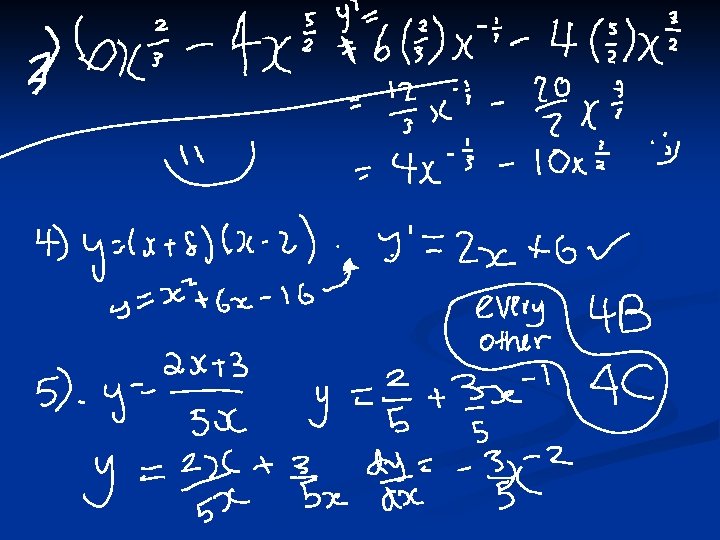 3) 6x^(2/3) - 4x^(5/2) y' = 6(2/3)x^(-1/3) - 4(5/2)x^(3/2)
= 12/3 x^(-1/3) - 20/2 x^(3/2)
= 4x^(-1/3) - 10x^(3/2) :)
4) y=(x+8)(x-2). y' = 2x+6 ✓
y = x²+6x-16
every other 4B 4C
5). y = (2x+3)/(5x) y = 2/5 + 3/5 x^(-1)
y = 2x/5x + 3/5x dy/dx = -3/5 x^(-2)